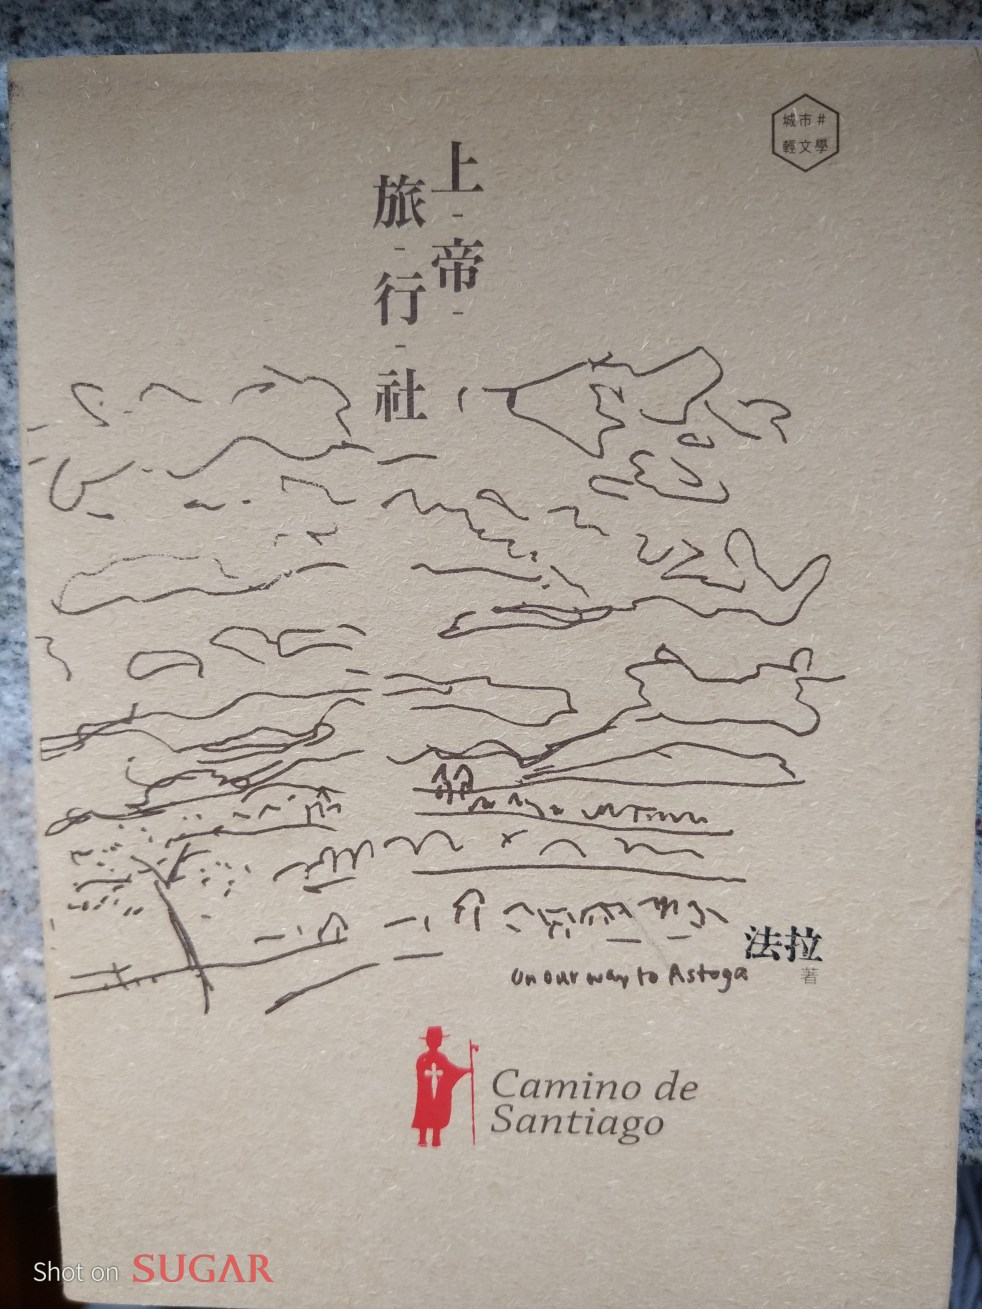 城市#
輕文學
上帝
旅行社
on our way to Astoga
法拉
著
Camino de
Santiago
Shot on SUGAR